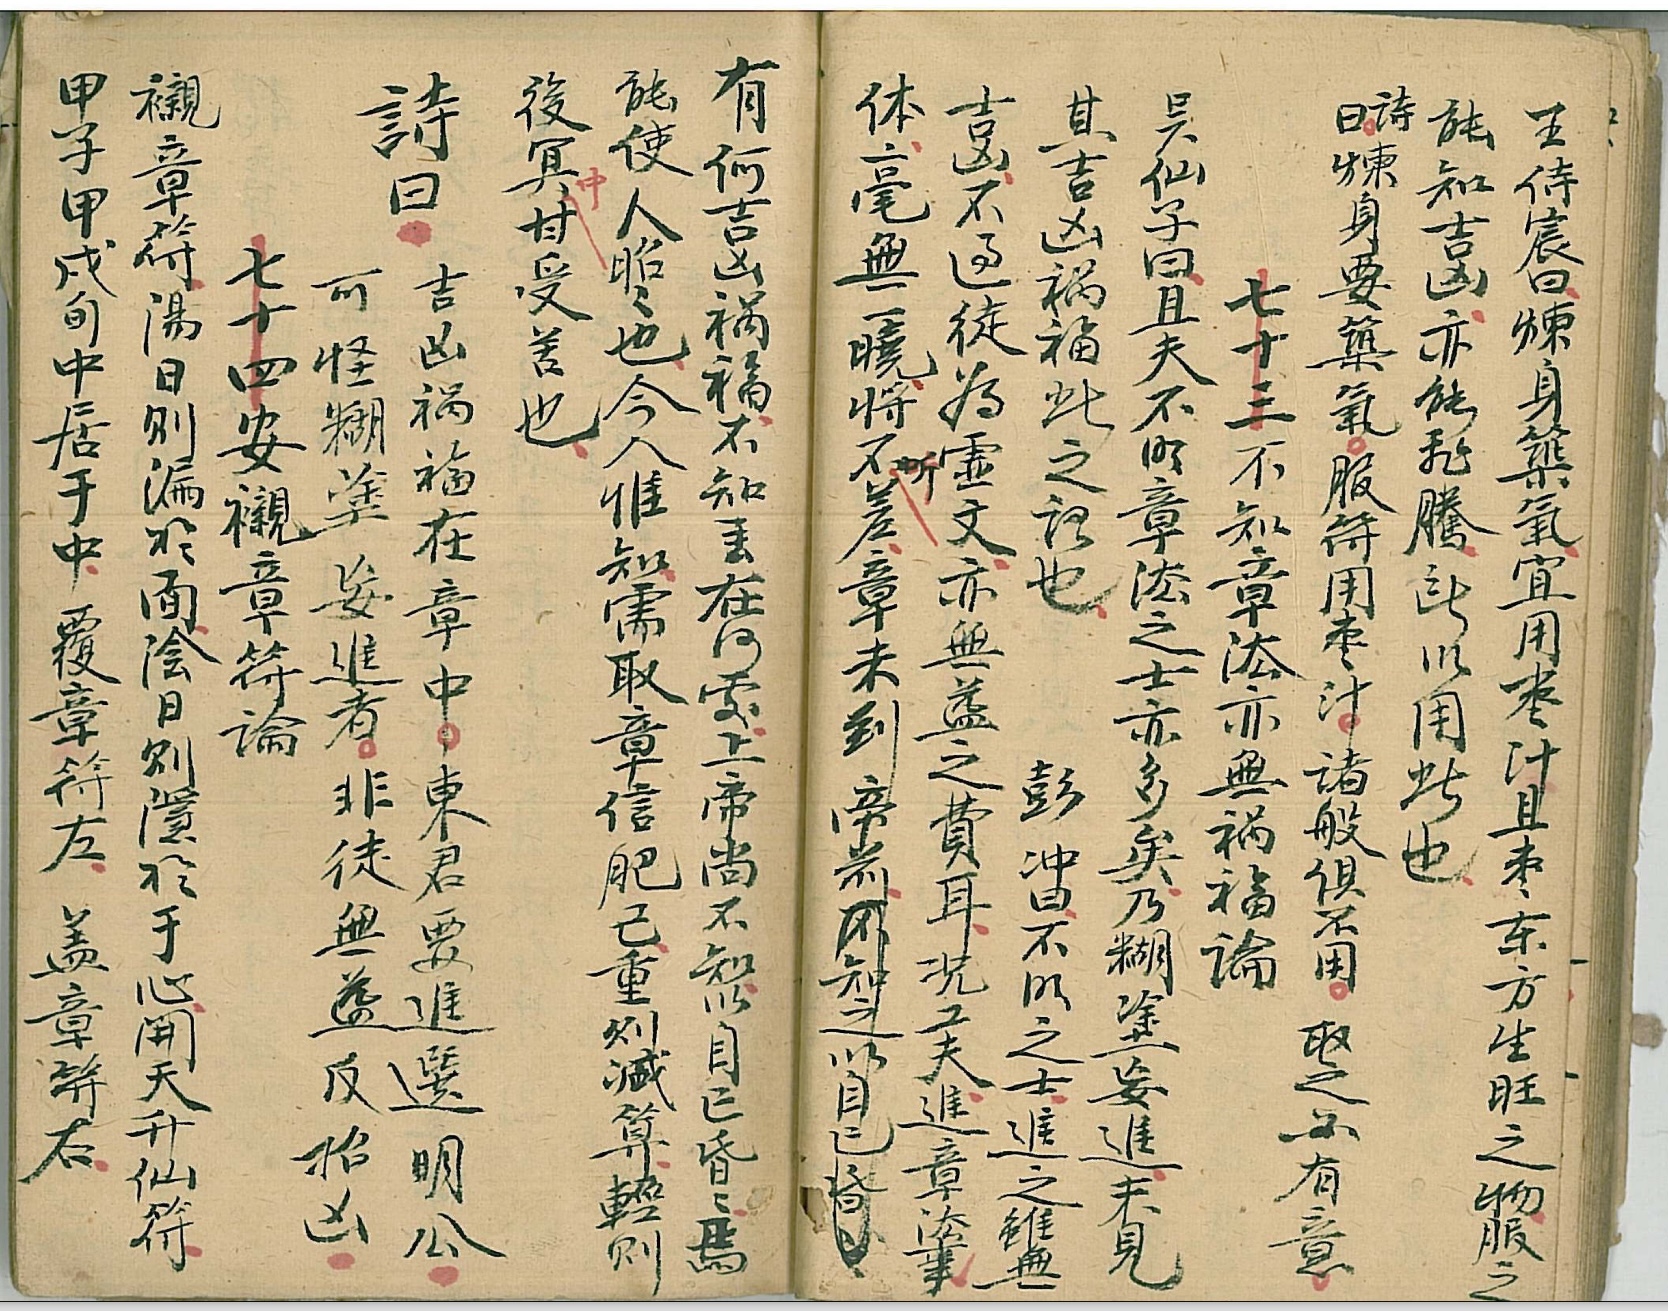 王侍宸曰煉身築氣宜用枣汁且枣东方生旺之物服之
能知吉凶亦能飛騰訣以用此也
詩曰煉身要築氣服符用枣汁諸般俱不用取之必有意
七十三不知章法亦無禍福論
吴仙子曰且夫不明章法之士亦多矣乃糊塗妄進未見
其吉凶祸福此之謂也 彭冲曰不明之士進之雖無
吉凶不過徒為虛文亦無益之費耳况工夫進章法事
体一毫無一曉將不差章未到帝前
有何吉凶祸福不知表在何處上帝尚不知以自己昏々焉
能使人昭々也今人惟知需取章信肥己重则滅算輕则
後冥中甘受苦也
詩曰
吉凶祸福在章中東君要進選明公
可怪糊塗妄進者非徒無益反招凶
七十四安襯章符論
襯章符陽日则漏於面陰日则隱於于心開天升仙符
甲子甲戌旬中居于中覆章符左盖章符右